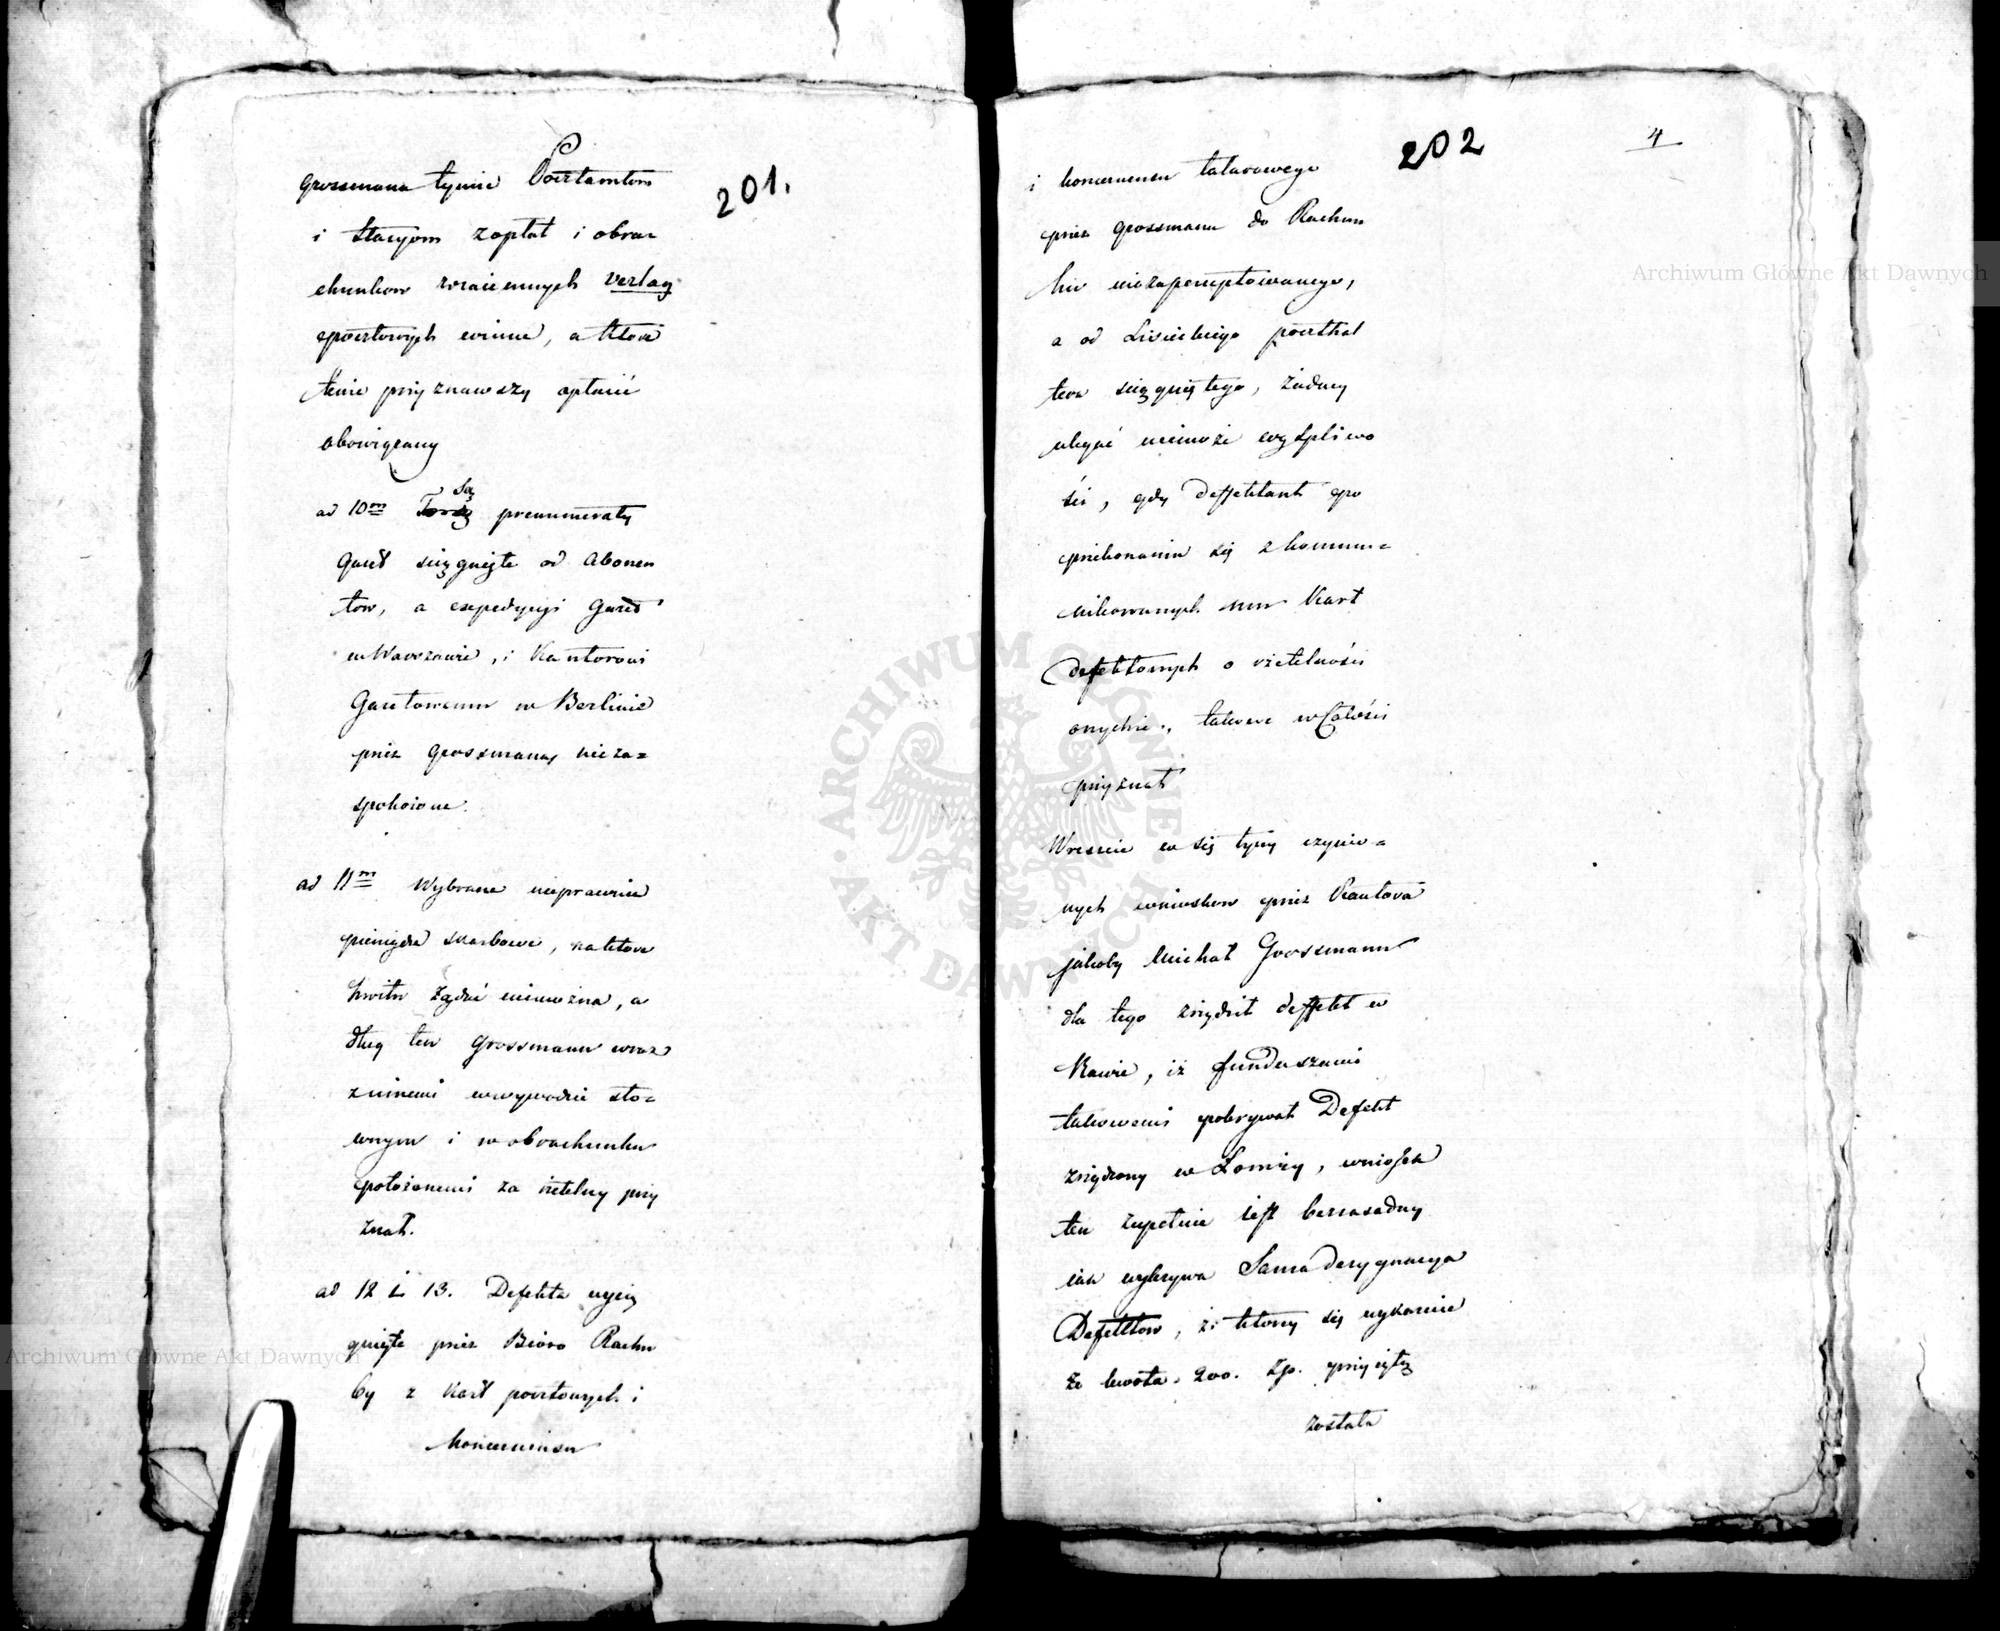 201.
Grossmana tymie Pocztamtom
i Stacyom zapłat i obra=
chunkow wzaiemnych Verlag
pocztowych winne, a które
tenie przyznawszy opłacić
obowiązany
ad 10m Są prenumeraty
Gazet ściągnięte od Abonen
tow, a expedycyi Gazet
w Warszawie, i Kantorowi
Gazetowemu w Berlinie
przez Grossmana nieza=
spokoione.
ad 11m Wybrane nieprawnie
pieniądze skarbowe, na które
kwitu żądać niemożna, a
dług ten Grossmann wraz
z innemi w wywodzie sło=
wnym i w obrachunku
położonemi za rzetelny przy
znał.
ad 12 i 13. Defekta wycią
gnięte przez Bióro Rachu
by z Kart pocztowych i
koncernensu
202
4
i koncernensu tatarowego
przez Grossmana do Rachun
ku niezapercyptowanego,
a od Lisieckiego poczthal
tera ściągniętego, żadney
ulegać niemoże wątpliwo
ści, gdy Deffektant po
przekonaniu się z kommu=
nikowanych mu Kart
defektowych o rzetelności
onychże, takowe w Całości
przyznał
Wreszcie w się tyczy czynio=
nych wniosków przez Kantora
jakoby Michał Grossmann
dla tego zrządził deffekt w
Rawie, iż funduszami
takowemi pokrywał Defekt
zrządzony w Łomży, wniosek
ten zupełnie iest bezzasadny
iak wykrywa Sama Dezygnacya
Defektow, z którey się wykazuie
że kwota 200. Zp. przyiętą
została